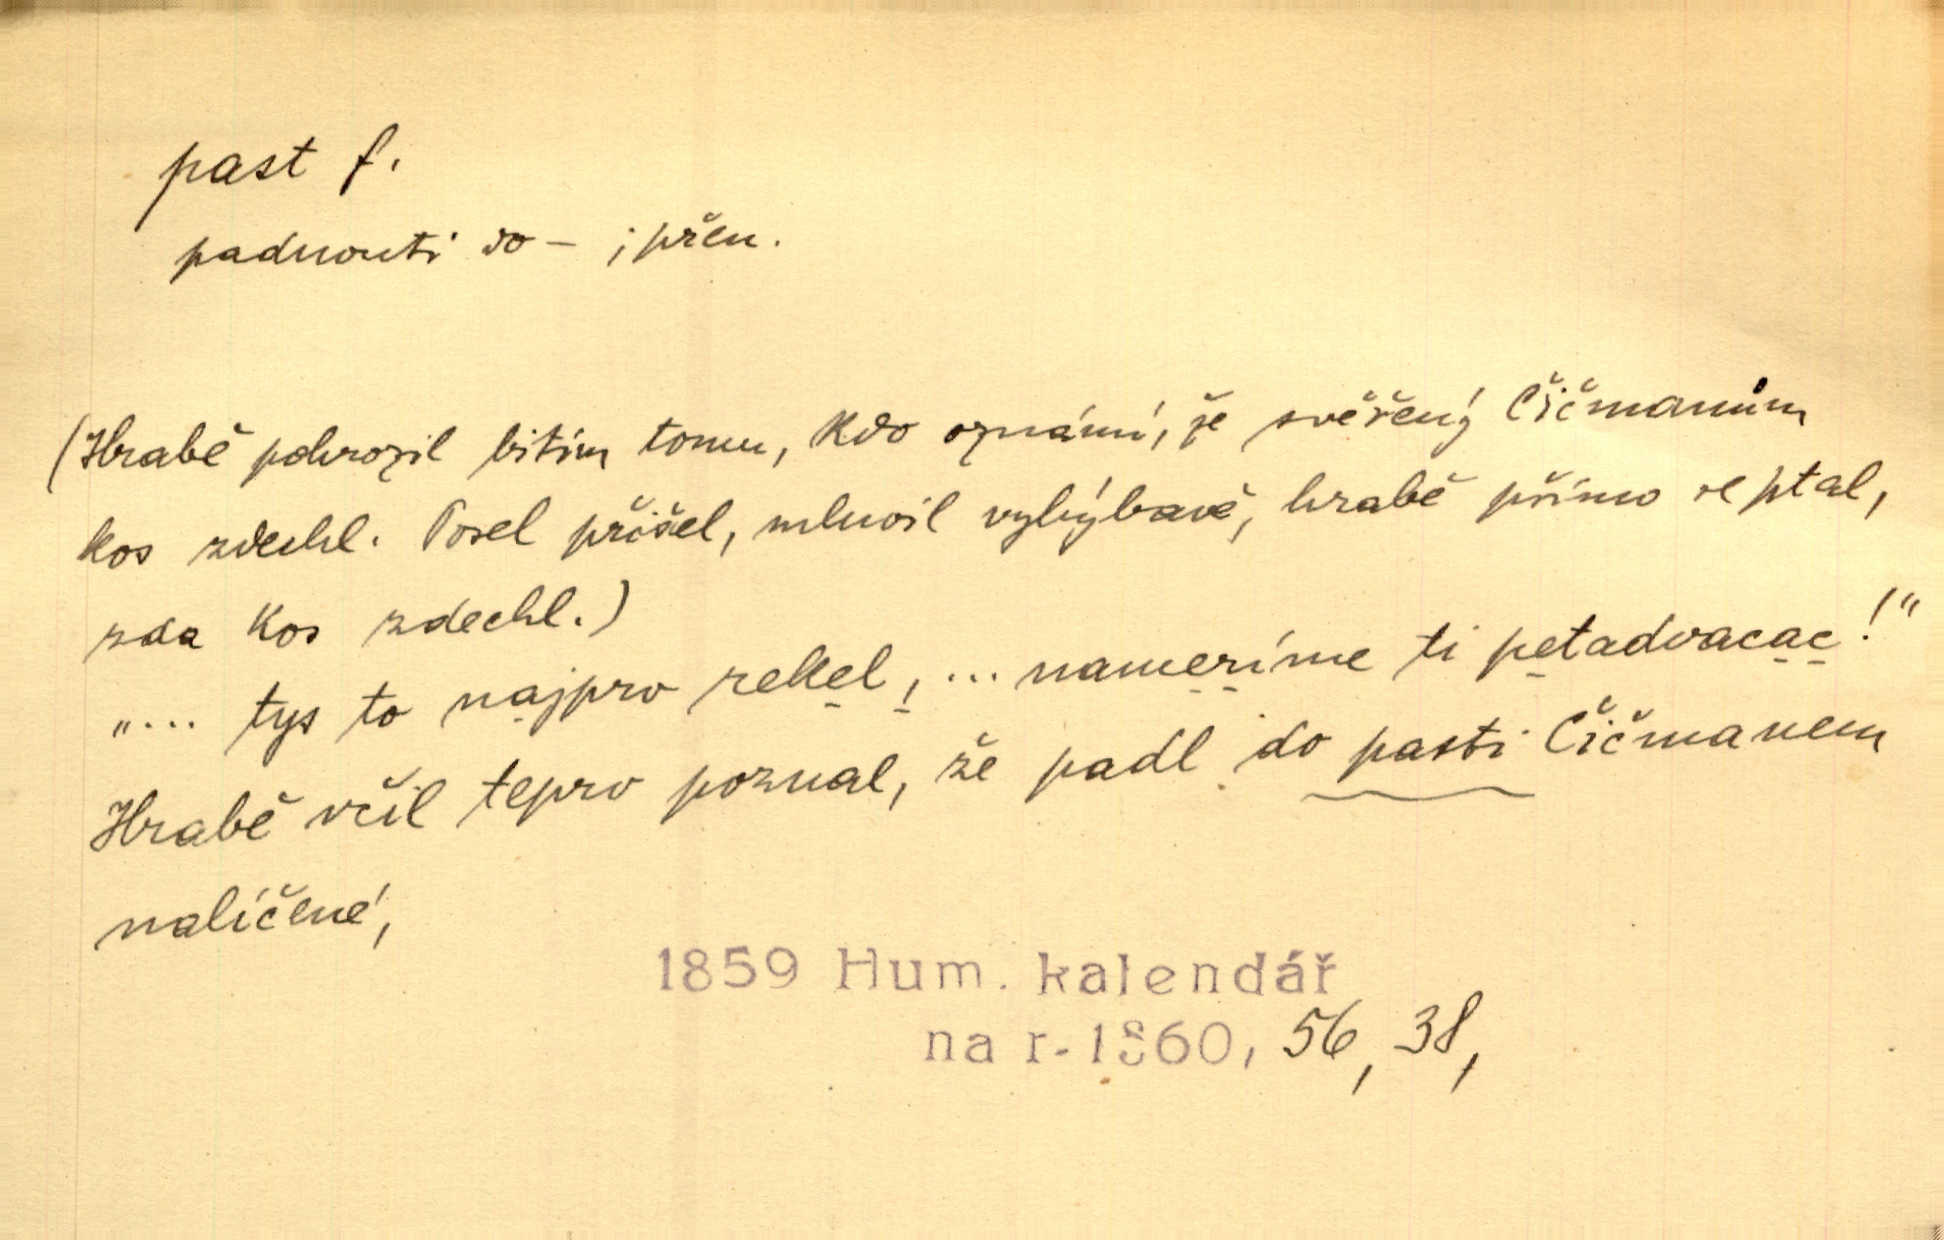 past f.
padnouti do – ; přen.
(Hrabě pohrozil bitím tomu, kdo oznámí, že svěřený Čičmanům
kos zdechl. Posel přišel, mluvil vyhýbavě, hrabě přímo se ptal,
zda kos zdechl.)
„... tys to najprv rekel, ... nameríme ti petadvacac!"
Hrabě včil teprv poznal, že padl do pasti Čičmanem
nalíčené,
1859 Hum. kalendář
na r. 1860, 56, 38,